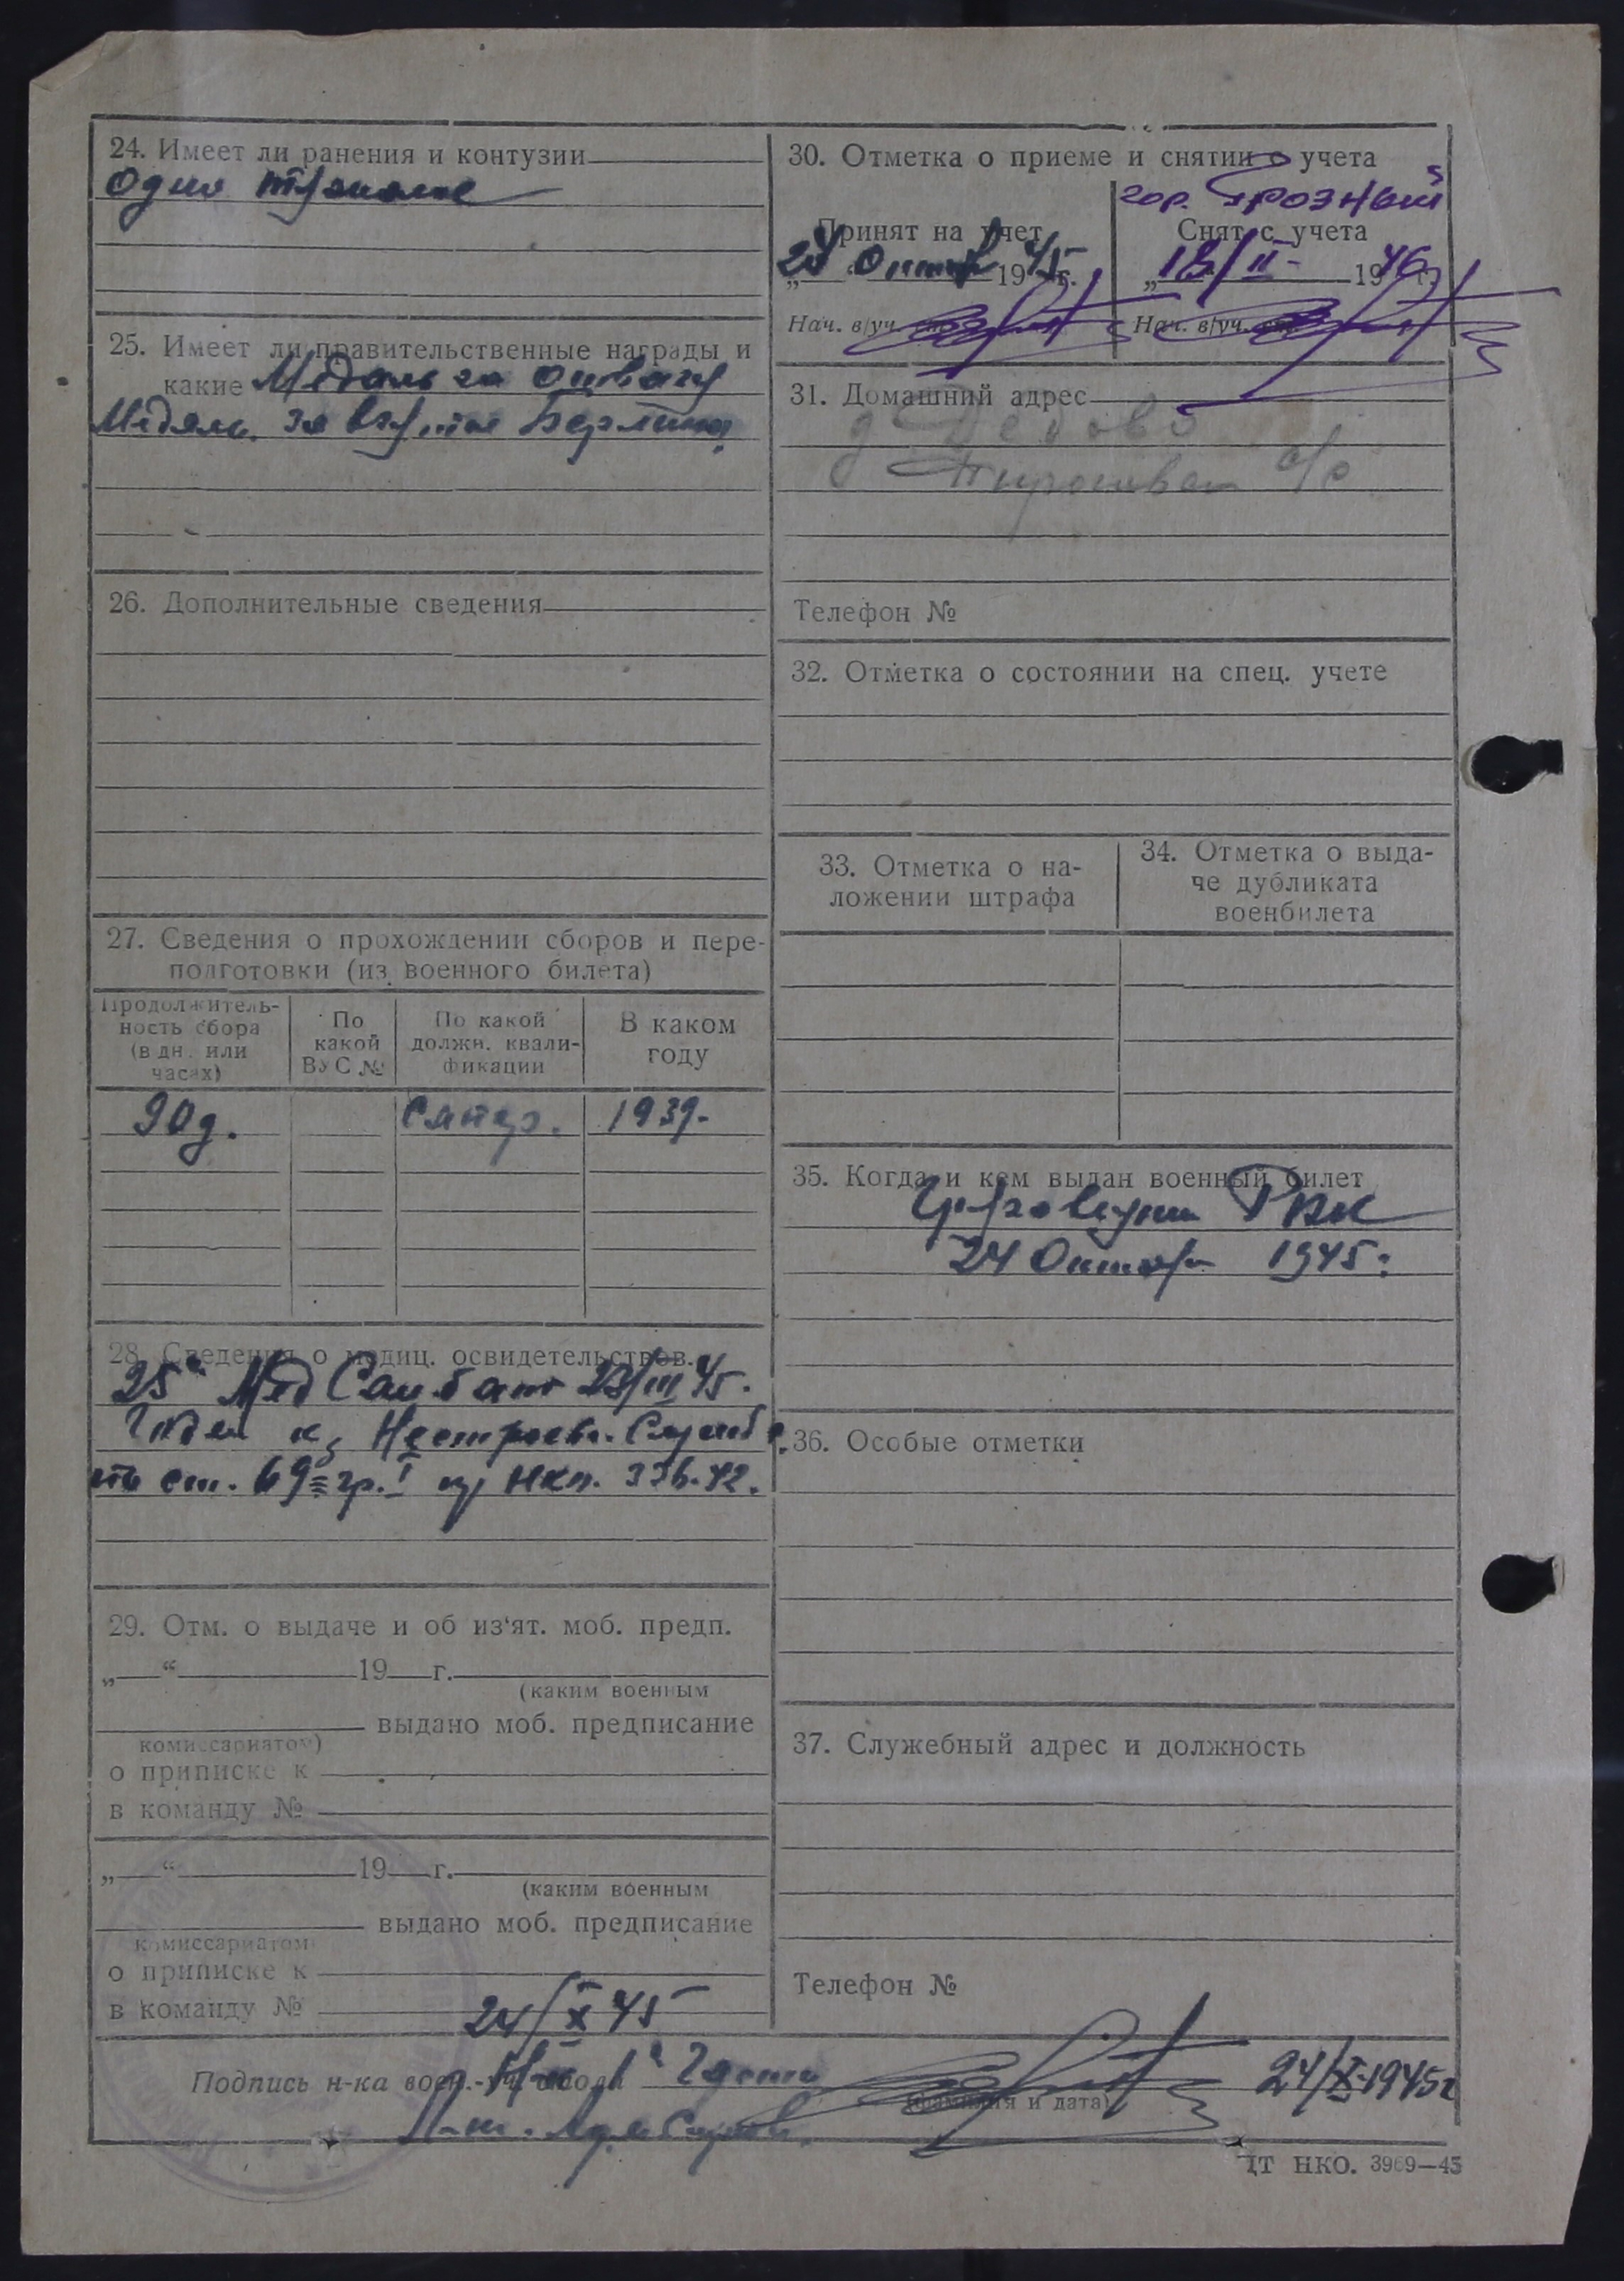 24. Имеет ли ранения и контузии
одно тяжелое
25. Имеет ли правительственные награды и
какие Медаль за отвагу
Медаль за взятие Берлина
26. Дополнительные сведения
27. Сведения о прохождении сборов и пере-
подготовки (из военного билета)
Продолжитель-
ность сбора
(в дн. или
часах)
По
какой
ВУС №
По какой
должн. квали-
фикации
В каком
году
90 д.
сапер.
1939.
28. Сведения о медиц. освидетельствов.
25й МедСанбат /III 45.
Годен к Нестроев. Служб
по ст. 69 гр. I пр НКО. 336-42.
29. Отм. о выдаче и об из'ят. моб. предп.
„ “ 19 г.
(каким военным
выдано моб. предписание
комиссариатом)
о приписке к
в команду №
„ “ 19 г.
(каким военным
выдано моб. предписание
комиссариатом
о приписке к
в команду №
24/X 45
30. Отметка о приеме и снятии с учета
гор. Грозный
Принят на учет
Снят с учета
„24 Октяб 1945 г.
„18/II- 1946 г.
Нач. в/уч.
Нач. в/уч.
31. Домашний адрес
д Дедово
с/с
Телефон №
32. Отметка о состоянии на спец. учете
33. Отметка о на-
ложении штрафа
34. Отметка о выда-
че дубликата
военбилета
35. Когда и кем выдан военный билет
РВК
24 Октября 1945г
36. Особые отметки
37. Служебный адрес и должность
Телефон №
Подпись н-ка воен.-уч. стола Части 24/X-1945г
(фамилия и дата)
ЦТ НКО. 3969—45